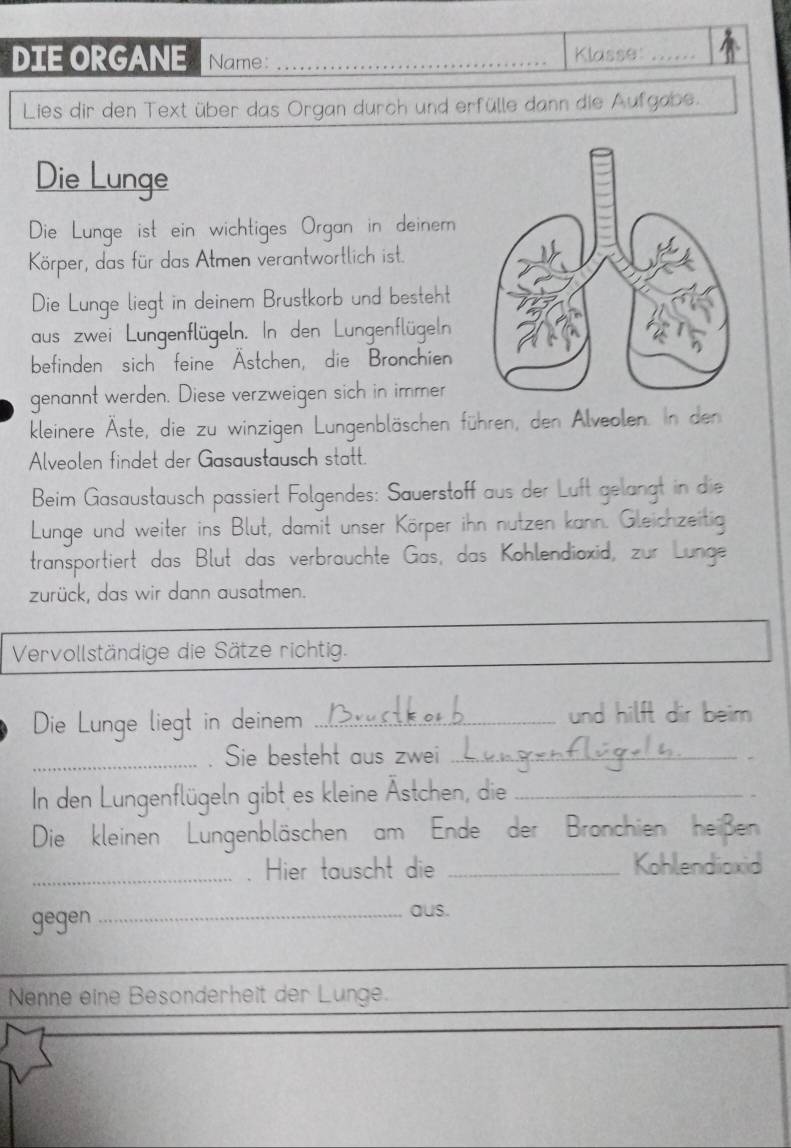 DIE ORGANE Name: ........................ Klasse: ......
Lies dir den Text über das Organ durch und erfülle dann die Aufgabe.
Die Lunge
Die Lunge ist ein wichtiges Organ in deinem
Körper, das für das Atmen verantwortlich ist.
Die Lunge liegt in deinem Brustkorb und besteht
aus zwei Lungenflügeln. In den Lungenflügeln
befinden sich feine Ästchen, die Bronchien
genannt werden. Diese verzweigen sich in immer
kleinere Äste, die zu winzigen Lungenbläschen führen, den Alveolen. In den
Alveolen findet der Gasaustausch statt.
Beim Gasaustausch passiert Folgendes: Sauerstoff aus der Luft gelangt in die
Lunge und weiter ins Blut, damit unser Körper ihn nutzen kann. Gleichzeitig
transportiert das Blut das verbrauchte Gas, das Kohlendioxid, zur Lunge
zurück, das wir dann ausatmen.
Vervollständige die Sätze richtig.
Die Lunge liegt in deinem Brustkorb und hilft dir beim
........................ . Sie besteht aus zwei Lungenflügeln. .
In den Lungenflügeln gibt es kleine Ästchen, die ........................ .
Die kleinen Lungenbläschen am Ende der Bronchien heißen
........................ . Hier tauscht die ........................ Kohlendioxid
gegen ........................ aus.
Nenne eine Besonderheit der Lunge.